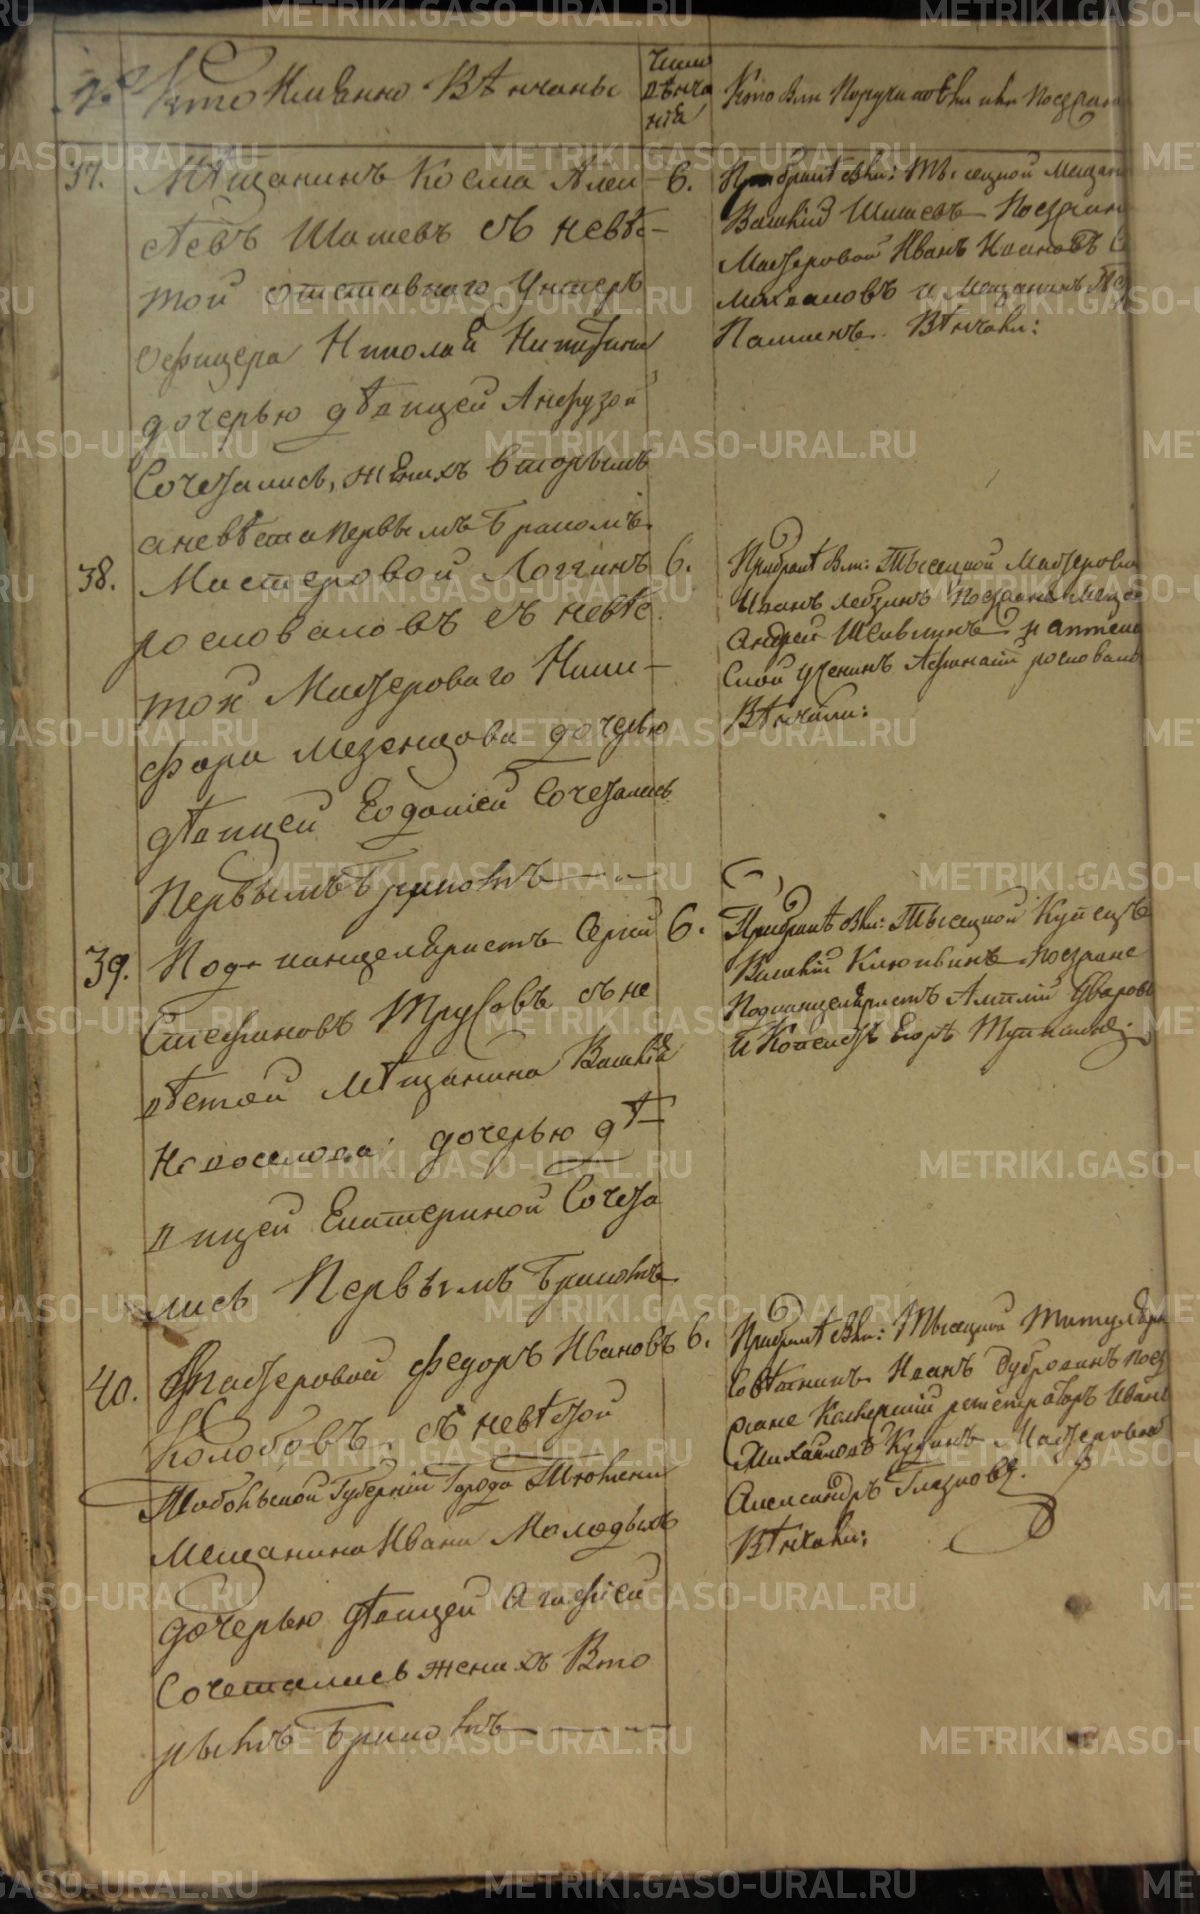 № Кто Именно Вѣнчаны
Число
вѣнча
нія
Кто были Поручители или Поезжан
37.
Мѣщанинъ Косма Алек
сѣевъ Шишевъ съ невѣс-
той отставного Унтеръ
офицера Николая Никитина
дочерью дѣвицей Анфузой
Сочетались, женихъ вторымъ
а невѣста первымъ бракомъ
6.
При бракѣ были: Тысецкой Мещан
Василій Шишевъ Поезжан
Мастеровой Иванъ Ивановъ
и Мещанинъ
Вѣнчали:
38.
Мастеровой Логгинъ
росповаловъ съ невѣс
той Мастероваго Ники-
фора Мезенцова дочерью
дѣвицей Евдокіей Сочетались
Первымъ бракомъ
6.
При бракѣ были: Тысецкой Мастерово
Иванъ поезжане Меща
Андрей и аптека
ской ученикъ Афанасій роспова
Вѣнчали:
39.
Подканцеляристъ Сергій
Стефановъ Трусовъ съ не
вѣстой Мѣщанина Василія
Новоселова дочерью дѣ-
вицей Екатериной Сочета
лись Первымъ бракомъ
6.
При бракѣ были: Тысецкой Купецъ
Василій Клюквинъ Поезжане
Подканцеляристъ Уваровъ
и Копеистъ Егоръ
40.
Мастеровой Федоръ Ивановъ
Колобовъ съ невѣстой
Тобольской Губерніи Города Тюмени
Мещанина Ивана Молодыхъ
дочерью дѣвицей Агафіей
Сочетались женихъ Вто
рымъ бракомъ
6.
При бракѣ были: Тысецкой Титуляр
Совѣтникъ Иванъ Дубровинъ поез
жане Колежскій регистраторъ Иванъ
Михайловъ Мастеровой
Александръ Глазковъ.
Вѣнчали:
METRIKI.GASO-URAL.RU